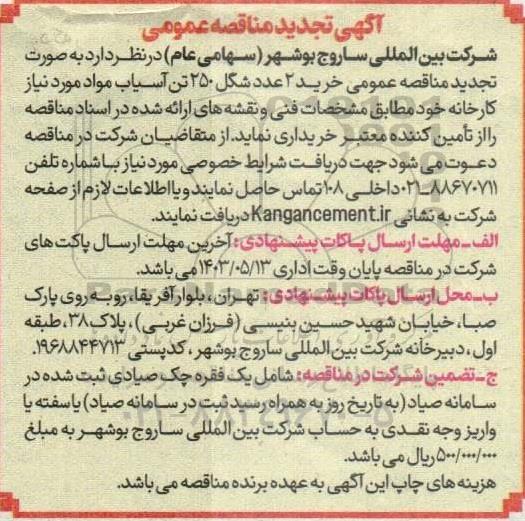 آگهی تجدید مناقصه عمومی
شرکت بین المللی ساروج بوشهر (سهامی عام) در نظر دارد به صورت
تجدید مناقصه عمومی خرید ۲ عدد شگل ۲۵۰ تن آسیاب مواد مورد نیاز
کارخانه خود مطابق مشخصات فنی و نقشه های ارائه شده در اسناد مناقصه
را از تأمین کننده معتبر خریداری نماید. از متقاضیان شرکت در مناقصه
دعوت می شود جهت دریافت شرایط خصوصی مورد نیاز با شماره تلفن
۸۸۶۷۰۷۱۱-۰۲۱ داخلی ۱۰۸ تماس حاصل نمایند و یا اطلاعات لازم از صفحه
شرکت به نشانی Kangancement.ir دریافت نمایند.
الف-مهلت ارسال پاکات پیشنهادی: آخرین مهلت ارسال پاکت های
شرکت در مناقصه پایان وقت اداری ۱۴۰۳/۰۵/۱۳ می باشد.
ب-محل ارسال پاکات پیشنهادی: تهران، بلوار آفریقا، روبه روی پارک
صبا، خیابان شهید حسین بنیسی (فرزان غربی)، پلاک ۳۸، طبقه
اول، دبیرخانه شرکت بین المللی ساروج بوشهر، کدپستی ۱۹۶۸۸۴۴۷۱۳.
ج-تضمین شرکت در مناقصه: شامل یک فقره چک صیادی ثبت شده در
سامانه صیاد (به تاریخ روز به همراه رسید ثبت در سامانه صیاد) یا سفته یا
واریز وجه نقدی به حساب شرکت بین المللی ساروج بوشهر به مبلغ
۵۰۰/۰۰۰/۰۰۰ ریال می باشد.
هزینه های چاپ این آگهی به عهده برنده مناقصه می باشد.